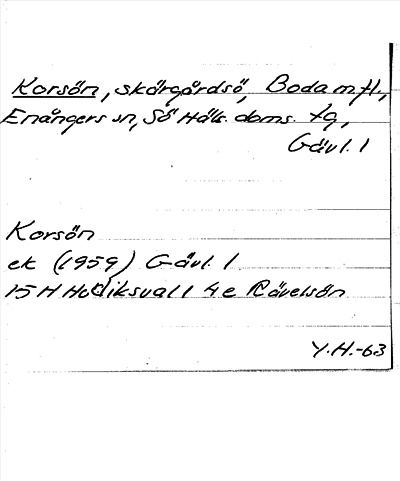 Korsön, skärgårdsö, Boda m.fl.,
Enångers sn, Sö Häls. doms. tg,
Gävl. l
Korsön
ek (1959) Gävl. l
15 H Hudiksvall 4 e Rävelsön
Y.H.-63